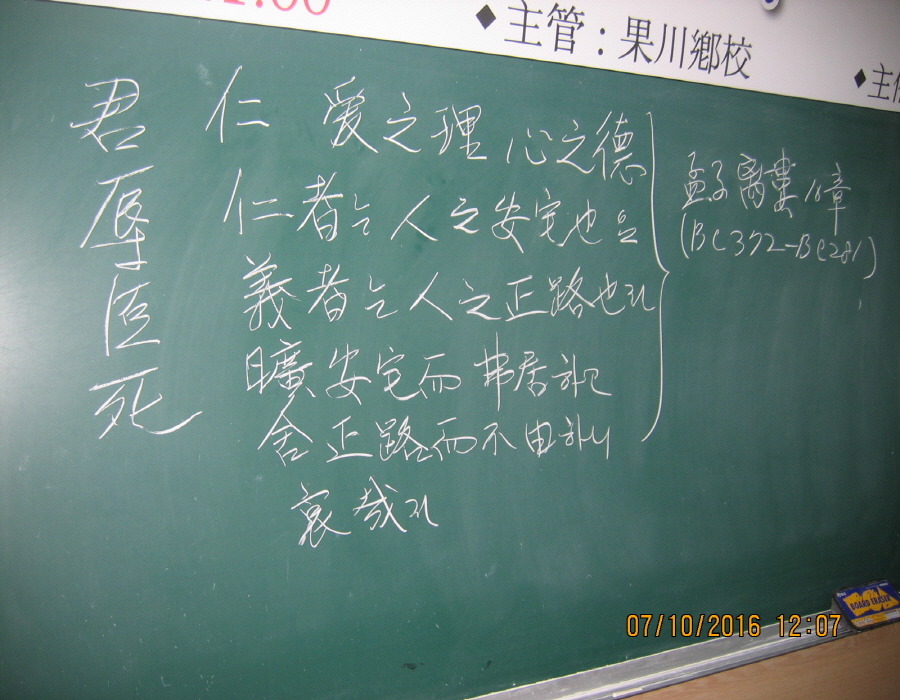 ◆主管 : 果川鄕校
君辱臣死
仁 爱之理 心之德
仁者는 人之安宅也요
義者는 人之正路也라
曠安宅而弗居하며
舍正路而不由하니
哀哉라
孟子 離婁 章
(BC372-BC289)
BOARD ERASER
07/10/2016 12:07